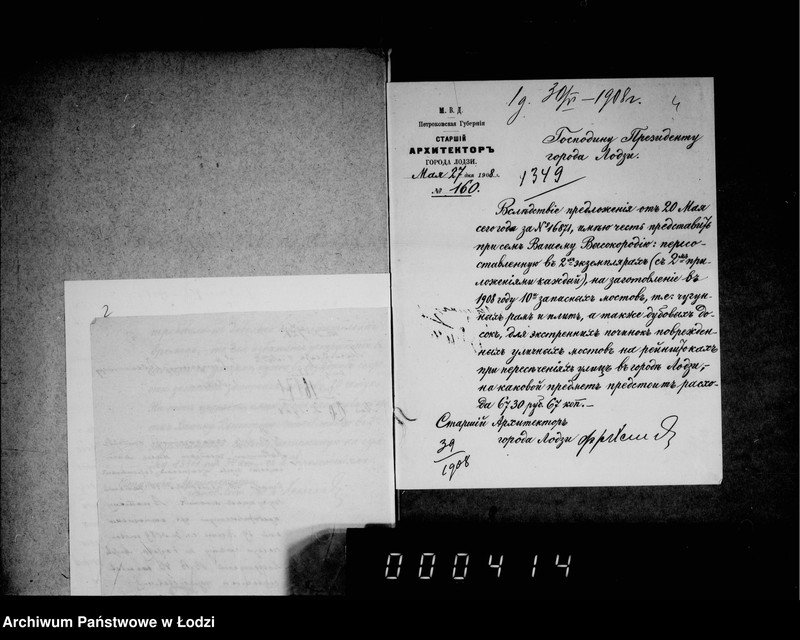 2
1д. 30/V – 1908 г. 4
М. В. Д.
Петроковская Губернія
СТАРШІЙ
АРХИТЕКТОРЪ
ГОРОДА ЛОДЗИ.
Мая 27 дня 1908 г.
№ 160.
Господину Президенту
города Лодзи.
1349
Вслѣдствіе предложенія отъ 20 Мая
сего года за № 16871, имѣю честь представить
при семъ Вашему Высокородію: пересо-
ставленную въ 2хъ экземплярахъ (съ 2мя при-
ложеніями каждый), на заготовленіе въ
1908 году 10ти запасныхъ мостовъ, т.е. чугун-
ныхъ рамъ и плитъ, а также дубовыхъ до-
сокъ, для экстренныхъ починокъ поврежден-
ныхъ уличныхъ мостовъ на рейнштокахъ
при пересѣченіяхъ улицъ въ городѣ Лодзи,–
на каковой предметъ предстоитъ расхо-
да 6730 руб. 67 коп.–
Старшій Архитекторъ
города Лодзи
39
1908
000414
Archiwum Państwowe w Łodzi